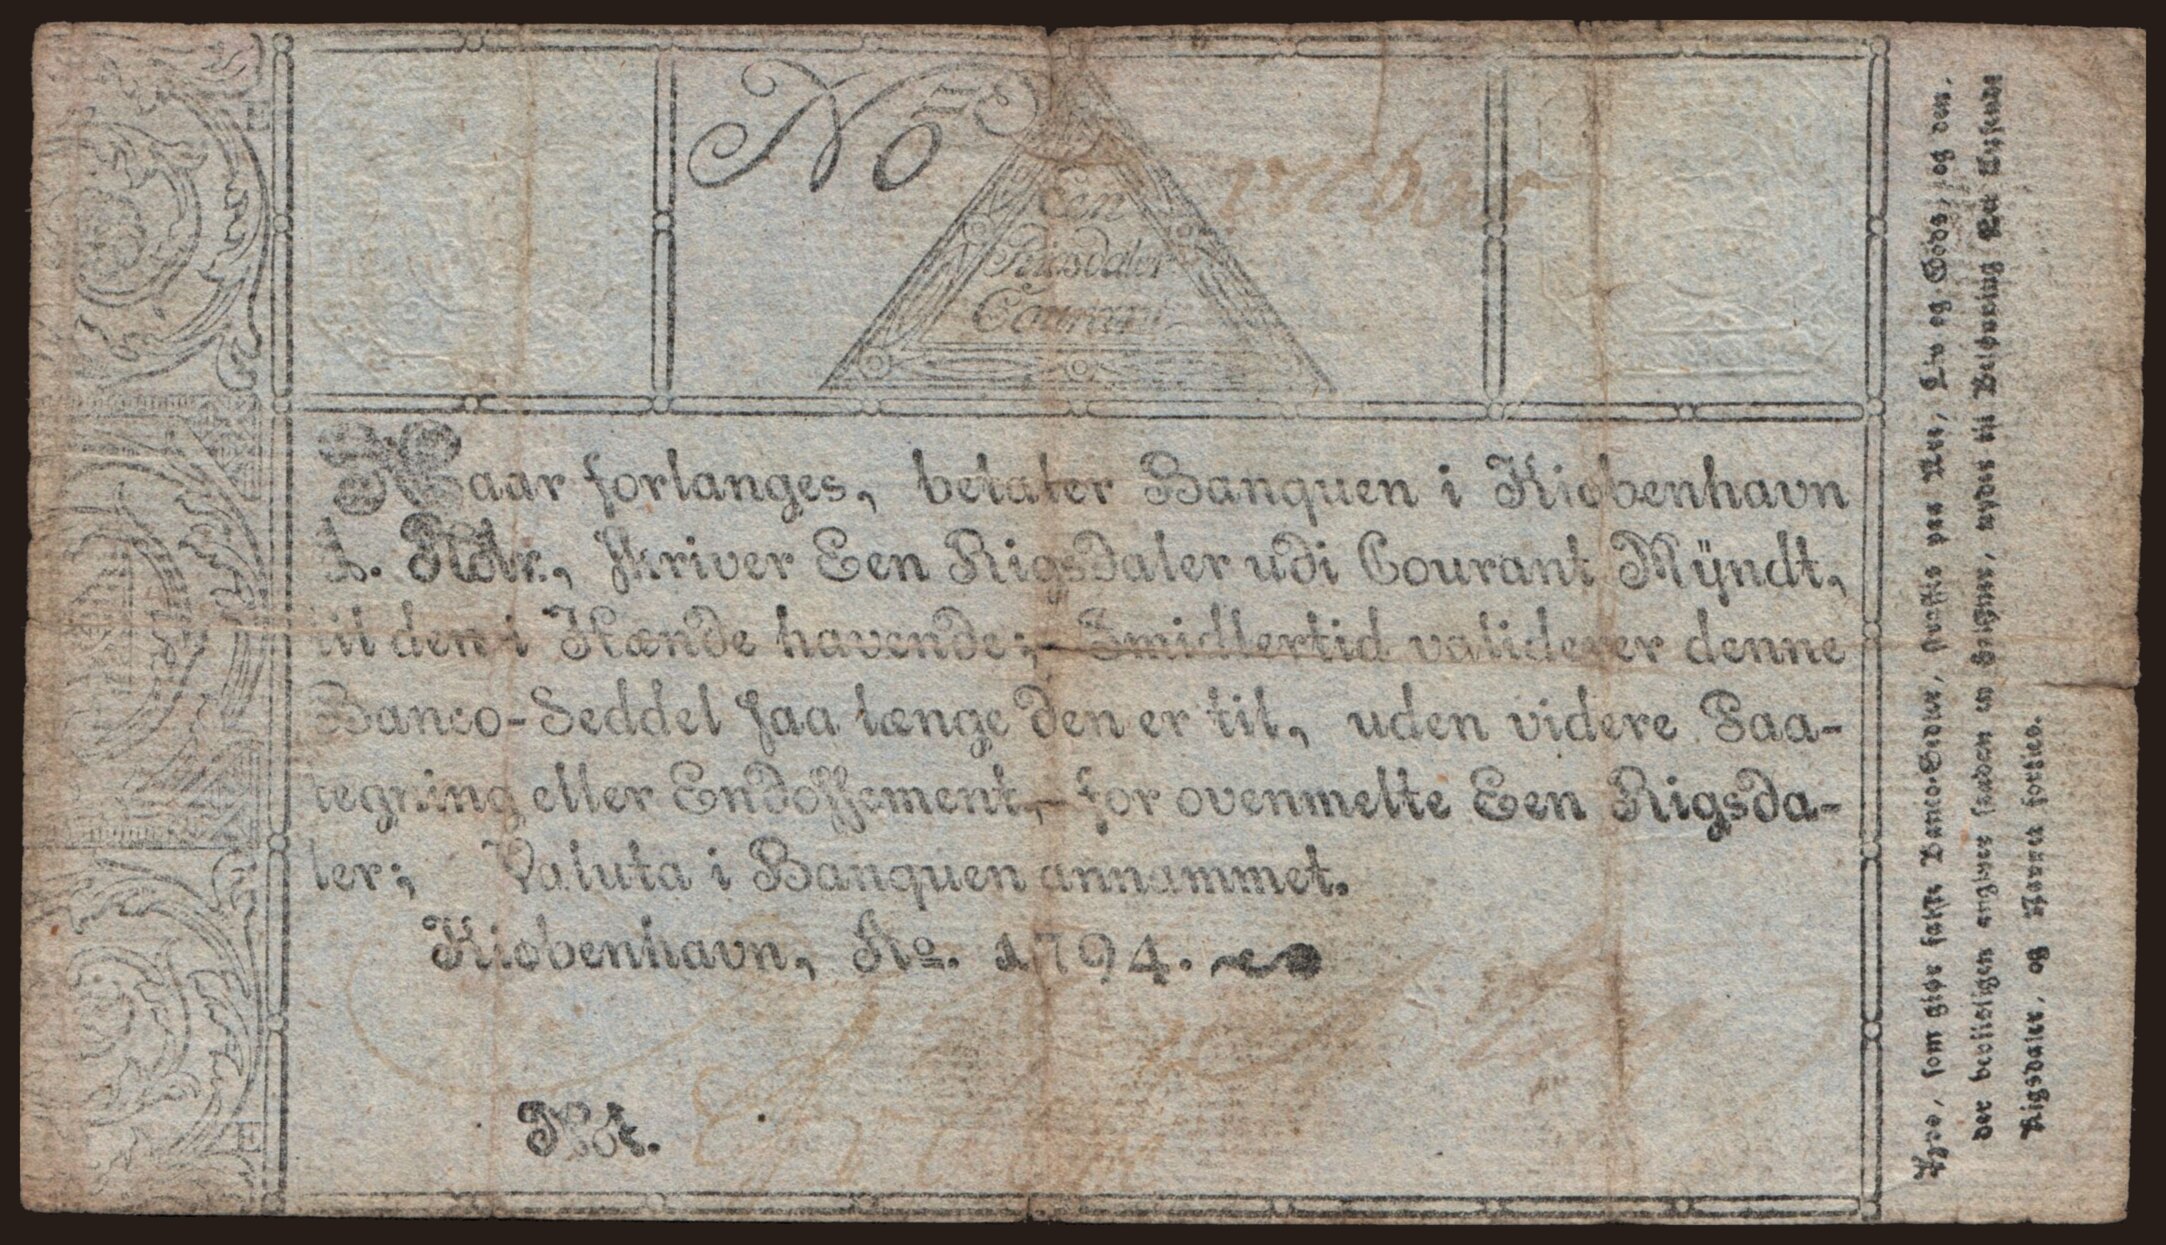 No
Een
Rigsdaler
Courant
Naar forlanges, betaler Banquen i Kiobenhavn
1. Rdlr., skriver Een Rigsdaler udi Courant Mÿndt,
til den i Hænde havende; Imidlertid validerer denne
Banco-Seddel saa længe den er til, uden videre Paa-
tegning eller Endossement, for ovenmelte Een Rigsda-
ler; Valuta i Banquen annammet.
Kiobenhavn, Ao. 1794.
Not.
som giør falske Banco-Sedler, straffes paa Ære, Liv og Gods, og den,
der beviisligen angiver saadan en
Rigsdaler, og Navnet forties.